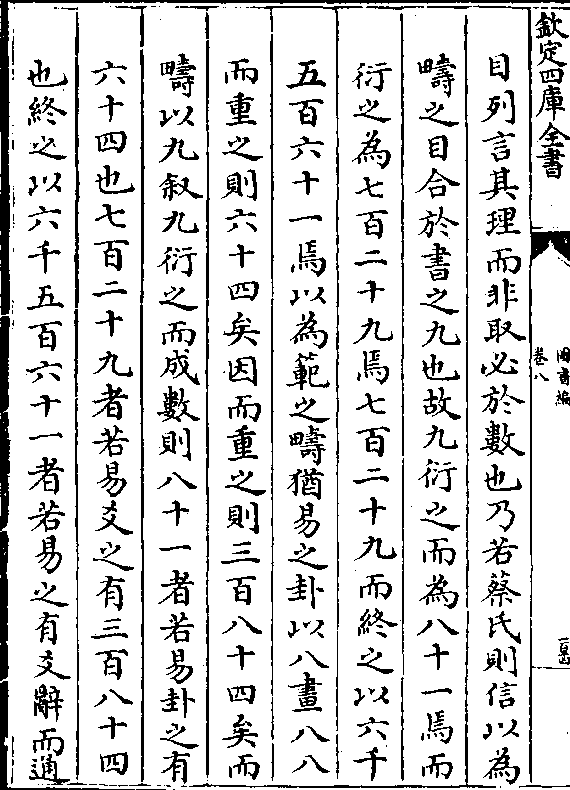 欽定四庫全書
圖書編
卷八
目列言其理而非取必於數也乃若蔡氏則信以為
疇之目合於書之九也故九衍之而為八十一焉而
衍之為七百二十九焉七百二十九而終之以六千
五百六十一焉以為範之疇猶易之卦以八畫八八
而重之則六十四矣因而重之則三百八十四矣而
疇以九敘九衍之而成數則八十一者若易卦之有
六十四也七百二十九者若易爻之有三百八十四
也終之以六千五百六十一者若易之有爻辭而通